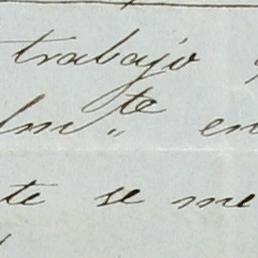 trabajo
lm,,te en
te se me